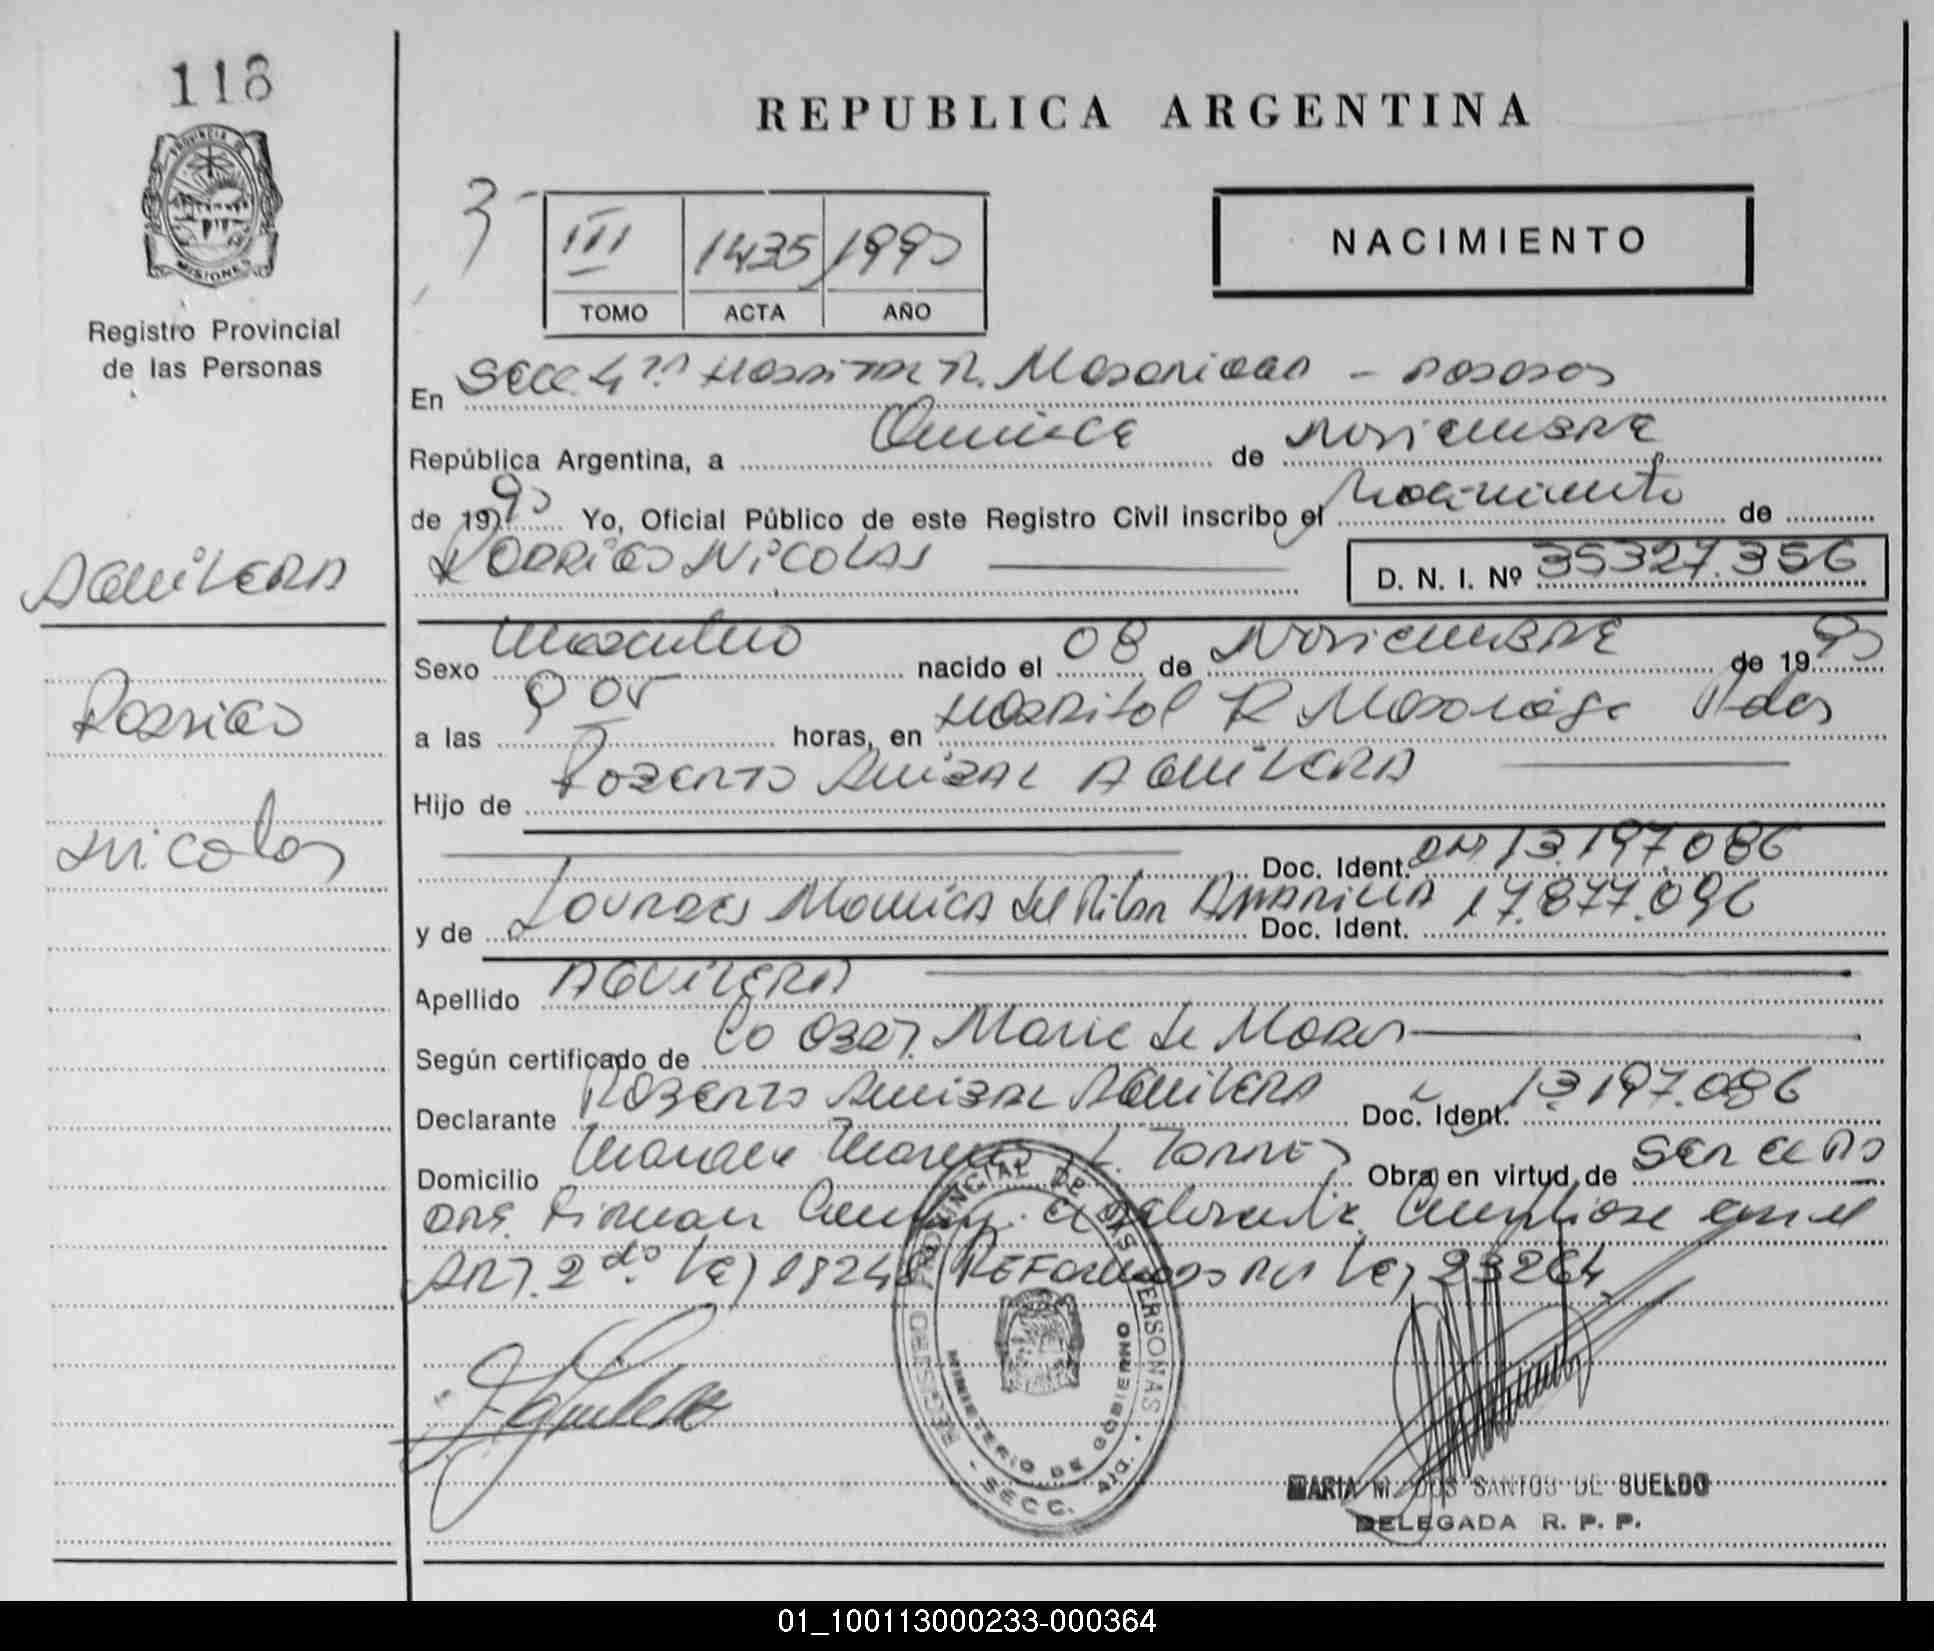 118
PROVINCIA DE MISIONES
Registro Provincial
de las Personas
AGUILERA
Rodrigo
Nicolas
REPUBLICA ARGENTINA
III 1435 1990
TOMO ACTA AÑO
NACIMIENTO
En Secc 4ta Hospital R. Madariaga - Posadas
República Argentina, a Quince de Noviembre
de 1990 Yo, Oficial Público de este Registro Civil inscribo el Nacimiento de
RODRIGO NICOLAS D. N. I. Nº 35327.356
Sexo Masculino nacido el 08 de Noviembre de 1990
a las 9 05 horas, en Hospital R Madariaga Pdas
Hijo de Roberto Anibal AGUILERA
Doc. Ident. DNI 13.197.086
y de Lourdes Monica del Pilar Amarilla Doc. Ident. 17.877.096
Apellido AGUILERA
Según certificado de Obst. Marie de
Declarante Roberto Anibal AGUILERA Doc. Ident. 13.197.086
Domicilio Mariano Moreno Torres Obra en virtud de ser el PD
Firman
Art. 2do. Ley 18248 Reformado por Ley 23264.
REGISTRO PROVINCIAL DE LAS PERSONAS
MINISTERIO DE GOBIERNO
SECC. 4ta.
MARIA M. DOS SANTOS DE SUELDO
DELEGADA R. P. P.
01_100113000233-000364